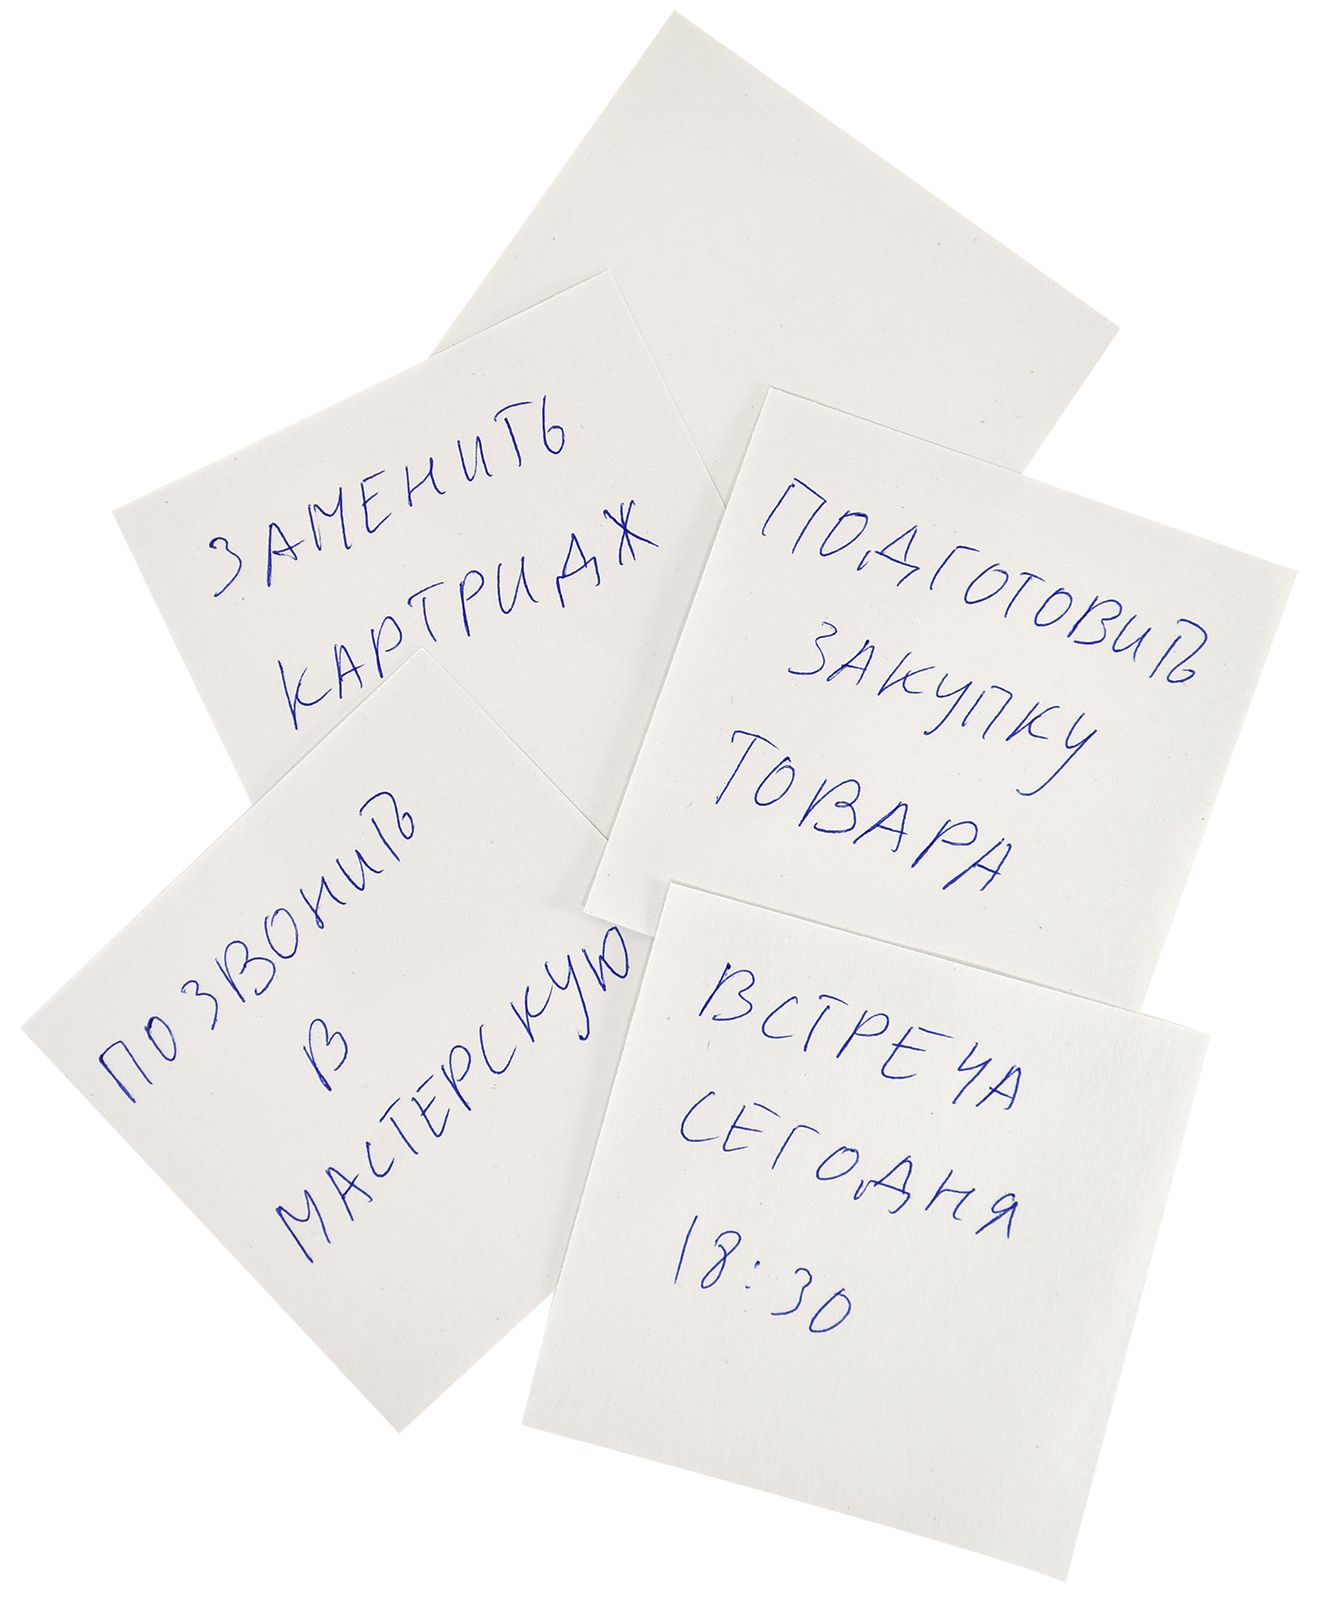 ЗАМЕНИТЬ
КАРТРИДЖ
ПОДГОТОВИТЬ
ЗАКУПКУ
ТОВАРА
ПОЗВОНИТЬ
В
МАСТЕРСКУЮ
ВСТРЕЧА
СЕГОДНЯ
18:30